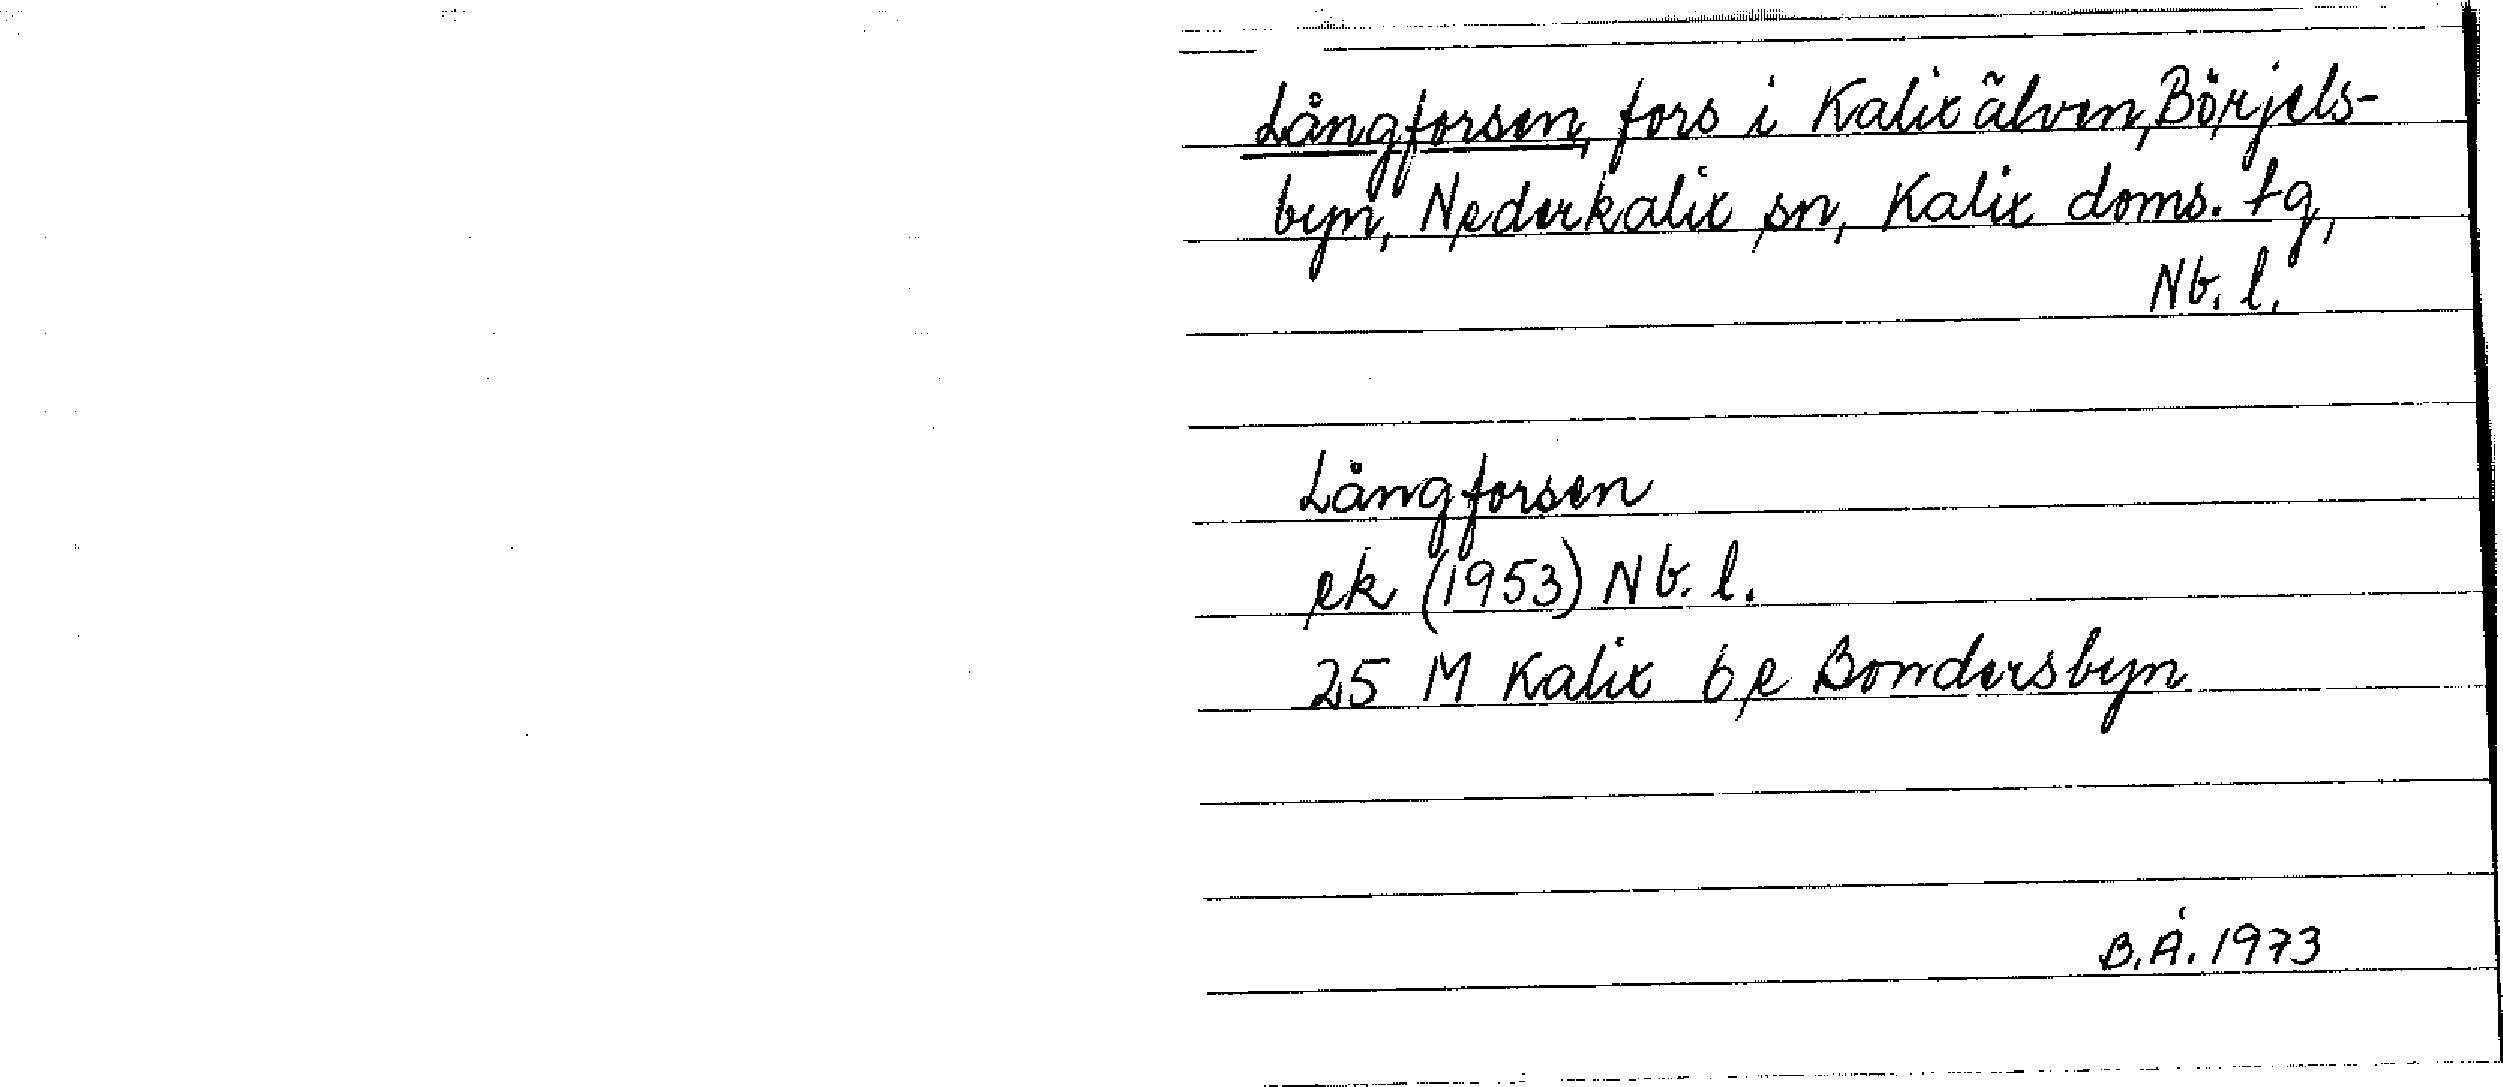 Långforsen, fors i Kalixälven, Börjels-
byn, Nederkalix sn, Kalix doms. tg,
Nb. l.
Långforsen
ek (1953) Nb. l.
25 M Kalix 6 e Bondersbyn
B.Å. 1973